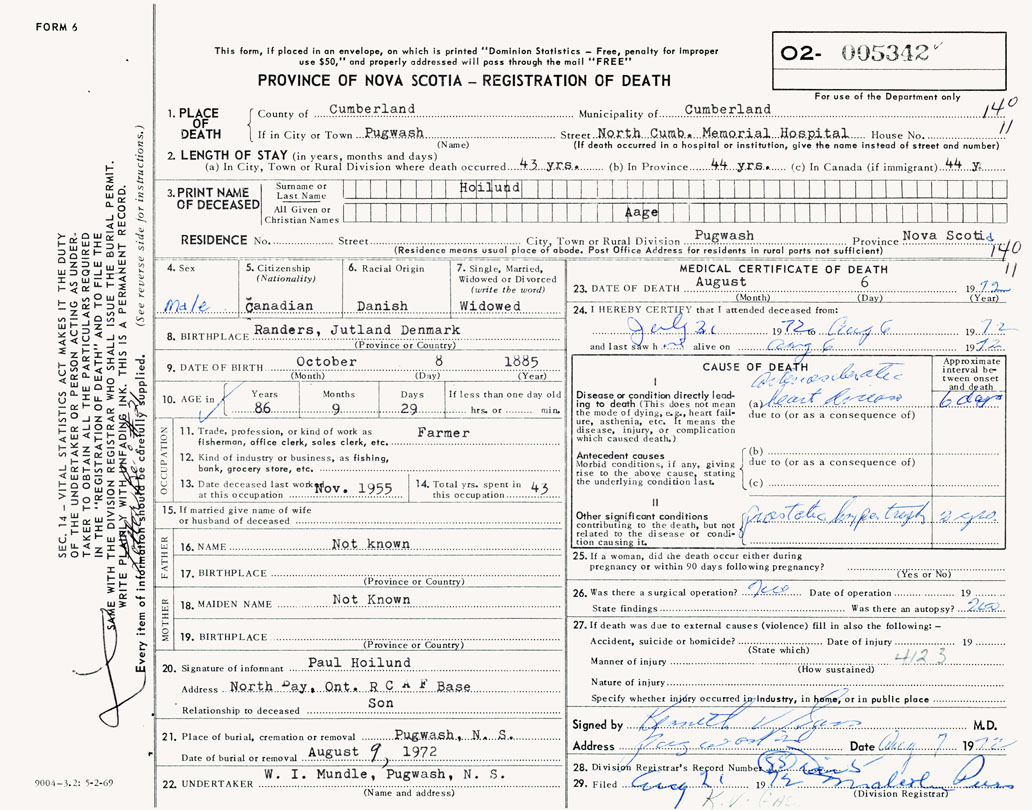 FORM 6
This form, if placed in an envelope, on which is printed "Dominion Statistics – Free, penalty for improper
use $50," and properly addressed will pass through the mail "FREE"
PROVINCE OF NOVA SCOTIA – REGISTRATION OF DEATH
02- 005342
For use of the Department only
140
11
1. PLACE OF DEATH
County of Cumberland Municipality of Cumberland
If in City or Town Pugwash Street North Cumb. Memorial Hospital House No.
(Name) (If death occurred in a hospital or institution, give the name instead of street and number)
2. LENGTH OF STAY (in years, months and days)
(a) In City, Town or Rural Division where death occurred 43 yrs. (b) In Province 44 yrs. (c) In Canada (if immigrant) 44 y.
3. PRINT NAME OF DECEASED
Surname or Last Name Hoilund
All Given or Christian Names Aage
RESIDENCE No. Street City, Town or Rural Division Pugwash Province Nova Scotia
(Residence means usual place of abode. Post Office Address for residents in rural parts not sufficient)
140
11
4. Sex
Male
5. Citizenship
(Nationality)
Canadian
6. Racial Origin
Danish
7. Single, Married,
Widowed or Divorced
(write the word)
Widowed
8. BIRTHPLACE Randers, Jutland Denmark
(Province or Country)
9. DATE OF BIRTH October 8 1885
(Month) (Day) (Year)
10. AGE in Years Months Days If less than one day old
86 9 29 hrs. or min.
OCCUPATION
11. Trade, profession, or kind of work as Farmer
fisherman, office clerk, sales clerk, etc.
12. Kind of industry or business, as fishing,
bank, grocery store, etc.
13. Date deceased last worked
at this occupation Nov. 1955
14. Total yrs. spent in
this occupation 43
15. If married give name of wife
or husband of deceased
FATHER
16. NAME Not known
17. BIRTHPLACE
(Province or Country)
MOTHER
18. MAIDEN NAME Not Known
19. BIRTHPLACE
(Province or Country)
20. Signature of informant Paul Hoilund
Address North Bay, Ont. R C A F Base
Relationship to deceased Son
21. Place of burial, cremation or removal Pugwash, N. S.
Date of burial or removal August 9, 1972
22. UNDERTAKER W. I. Mundle, Pugwash, N. S.
(Name and address)
MEDICAL CERTIFICATE OF DEATH
23. DATE OF DEATH August 6 1972
(Month) (Day) (Year)
24. I HEREBY CERTIFY that I attended deceased from:
July 21 1972 to Aug 6 1972
and last saw him alive on Aug 6 1972
CAUSE OF DEATH
Approximate
interval be-
tween onset
and death
I
Disease or condition directly lead-
ing to death (This does not mean
the mode of dying, e.g., heart fail-
ure, asthenia, etc. It means the
disease, injury, or complication
which caused death.)
arteriosclerotic
(a) heart disease 6 days
due to (or as a consequence of)
Antecedent causes
Morbid conditions, if any, giving
rise to the above cause, stating
the underlying condition last.
(b)
due to (or as a consequence of)
(c)
II
Other significant conditions
contributing to the death, but not
related to the disease or condi-
tion causing it.
prostatic hypertrophy 2 yrs
25. If a woman, did the death occur either during
pregnancy or within 90 days following pregnancy?
(Yes or No)
26. Was there a surgical operation? no Date of operation 19
State findings Was there an autopsy? no
27. If death was due to external causes (violence) fill in also the following: –
Accident, suicide or homicide? Date of injury 19
(State which)
4123
Manner of injury
(How sustained)
Nature of injury
Specify whether injury occurred in industry, in home, or in public place
Signed by Kenneth M.D.
Address Pugwash Date Aug 7 1972
28. Division Registrar's Record Number
29. Filed Aug 21 1972 Malcolm
(Division Registrar)
SEC. 14 – VITAL STATISTICS ACT MAKES IT THE DUTY
OF THE UNDERTAKER OR PERSON ACTING AS UNDER-
TAKER TO OBTAIN ALL THE PARTICULARS REQUIRED
IN THE "REGISTRATION OF DEATH" AND TO FILE THE
SAME WITH THE DIVISION REGISTRAR WHO SHALL ISSUE THE BURIAL PERMIT.
WRITE PLAINLY WITH UNFADING INK. THIS IS A PERMANENT RECORD.
Every item of information should be carefully supplied. (See reverse side for instructions.)
9004-3.2: 5-2-69